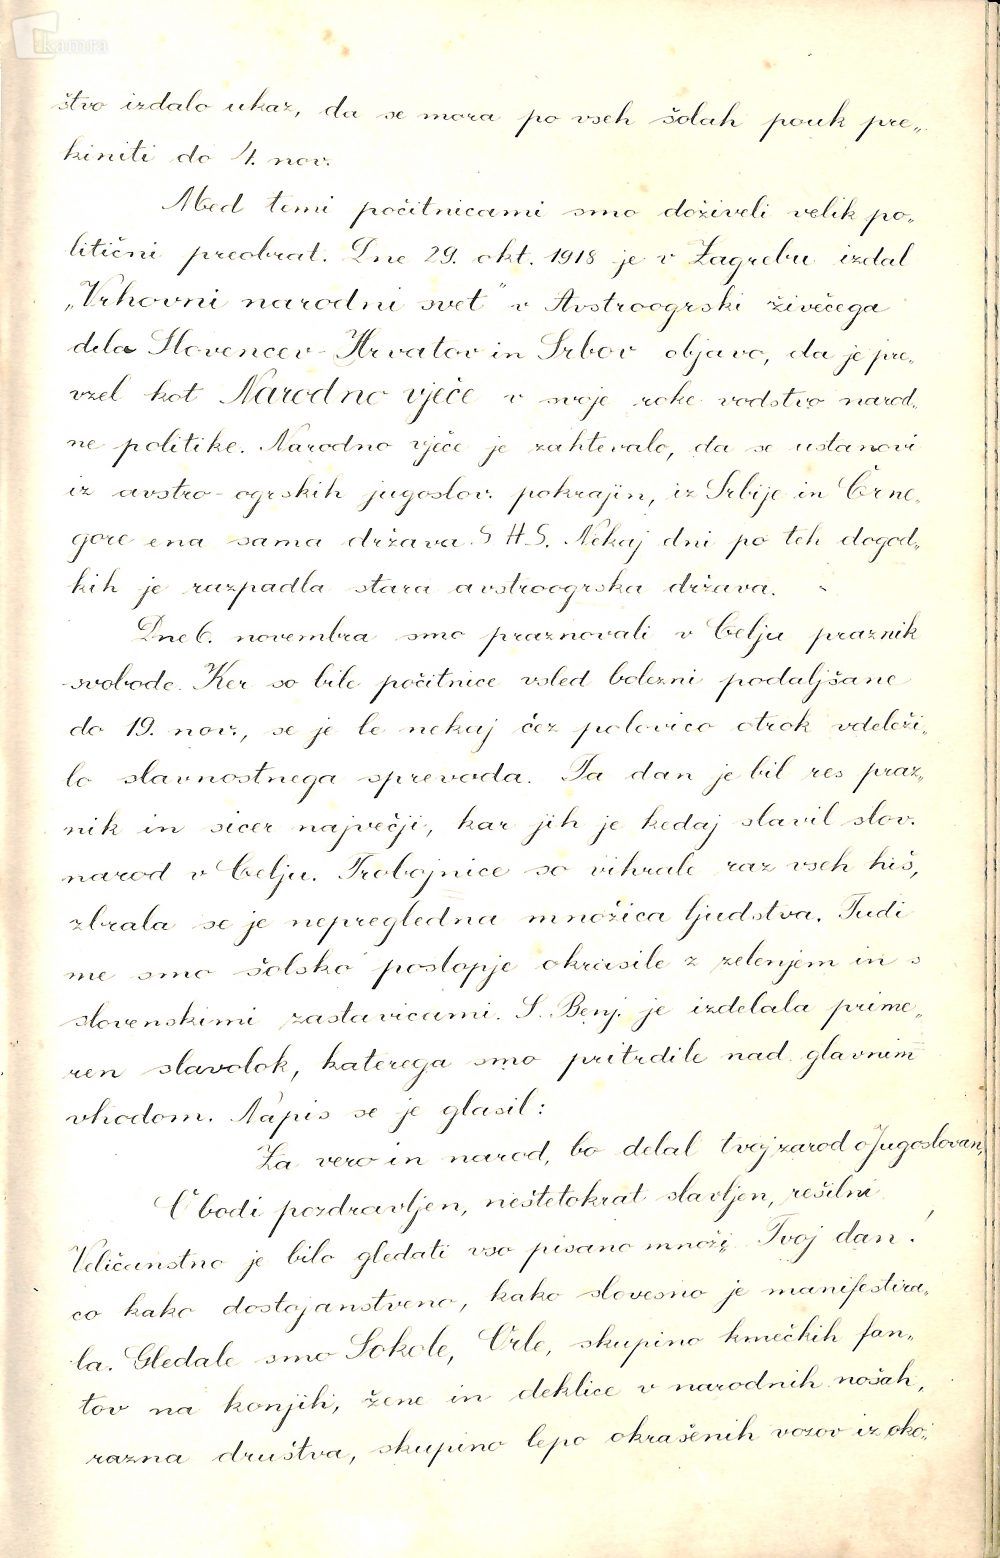 kamra
štvo izdalo ukaz, da se mora po vseh šolah pouk pre„
kiniti do 4. nov.
Med temi počitnicami smo doživeli velik po„
litični preobrat. Dne 29. okt. 1918 je v Zagrebu izdal
„Vrhovni narodni svet" v Avstroogrski živečega
dela Slovencev-Hrvatov in Srbov objavo, da je pre„
vzel kot Narodno vječe v svoje roke vodstvo narod„
ne politike. Narodno vječe je zahtevalo, da se ustanovi
iz avstro-ogrskih jugoslov. pokrajin, iz Srbije in Črne„
gore ena sama država S H S. Nekaj dni po teh dogod„
kih je razpadla stara avstroogrska država.
Dne 6. novembra smo praznovali v Celju praznik
svobode. Ker so bile počitnice vsled bolezni podaljšane
do 19. nov., se je le nekaj čez polovico otrok vdeleži„
lo slavnostnega sprevoda. Ta dan je bil res praz„
nik in sicer največji, kar jih je kedaj slavil slov.
narod v Celju. Trobojnice so vihrale raz vseh hiš,
zbrala se je nepregledna množica ljudstva. Tudi
me smo šolsko poslopje okrasile z zelenjem in s
slovenskimi zastavicami. S. Benj. je izdelala prime„
ren slavolok, katerega smo pritrdile nad glavnim
vhodom. Napis se je glasil:
Za vero in narod, bo delal tvoj zarod o Jugoslovan,
O bodi pozdravljen, neštetokrat slavljen, rešilni
Tvoj dan!
Veličanstno je bilo gledati vso pisano množi„
co kako dostojanstveno, kako slovesno je manifestira„
la. Gledale smo Sokole, Orle, skupino kmečkih fan„
tov na konjih, žene in deklice v narodnih nošah,
razna društva, skupino lepo okrašenih vozov iz oko„